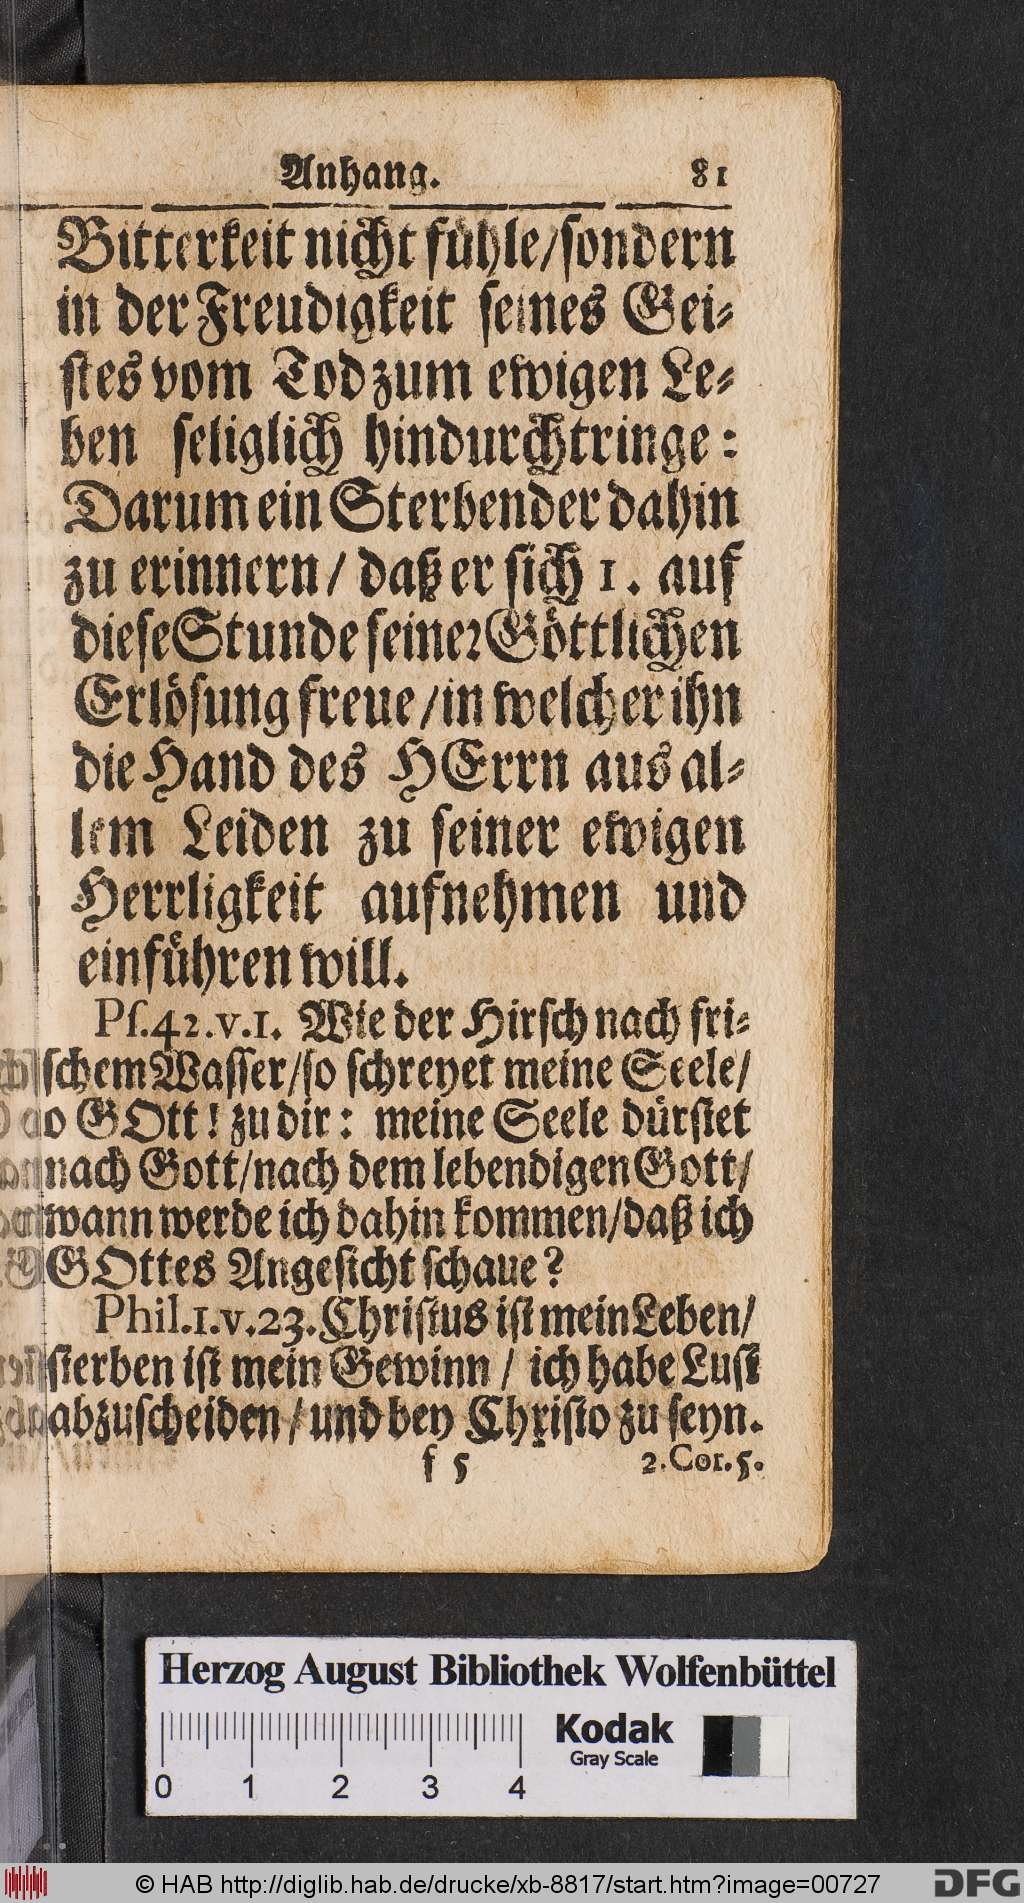 Anhang. 81
Bitterkeit nicht fühle/sondern
in der Freudigkeit seines Gei-
stes vom Tod zum ewigen Le-
ben seliglich hindurchtringe:
Darum ein Sterbender dahin
zu erinnern/ daß er sich 1. auf
diese Stunde seiner Göttlichen
Erlösung freue/in welcher ihn
die Hand des HErrn aus al-
lem Leiden zu seiner ewigen
Herrligkeit aufnehmen und
einführen will.
Ps.42.v.1. Wie der Hirsch nach fri-
schem Wasser/so schreyet meine Seele/
o GOtt! zu dir: meine Seele dürstet
nach Gott/nach dem lebendigen Gott/
wann werde ich dahin kommen/daß ich
GOttes Angesicht schaue?
Phil.1.v.23. Christus ist mein Leben/
sterben ist mein Gewinn/ ich habe Lust
abzuscheiden/und bey Christo zu seyn.
f 5 2.Cor.5.
Herzog August Bibliothek Wolfenbüttel
Kodak
Gray Scale
0 1 2 3 4
© HAB http://diglib.hab.de/drucke/xb-8817/start.htm?image=00727
DFG